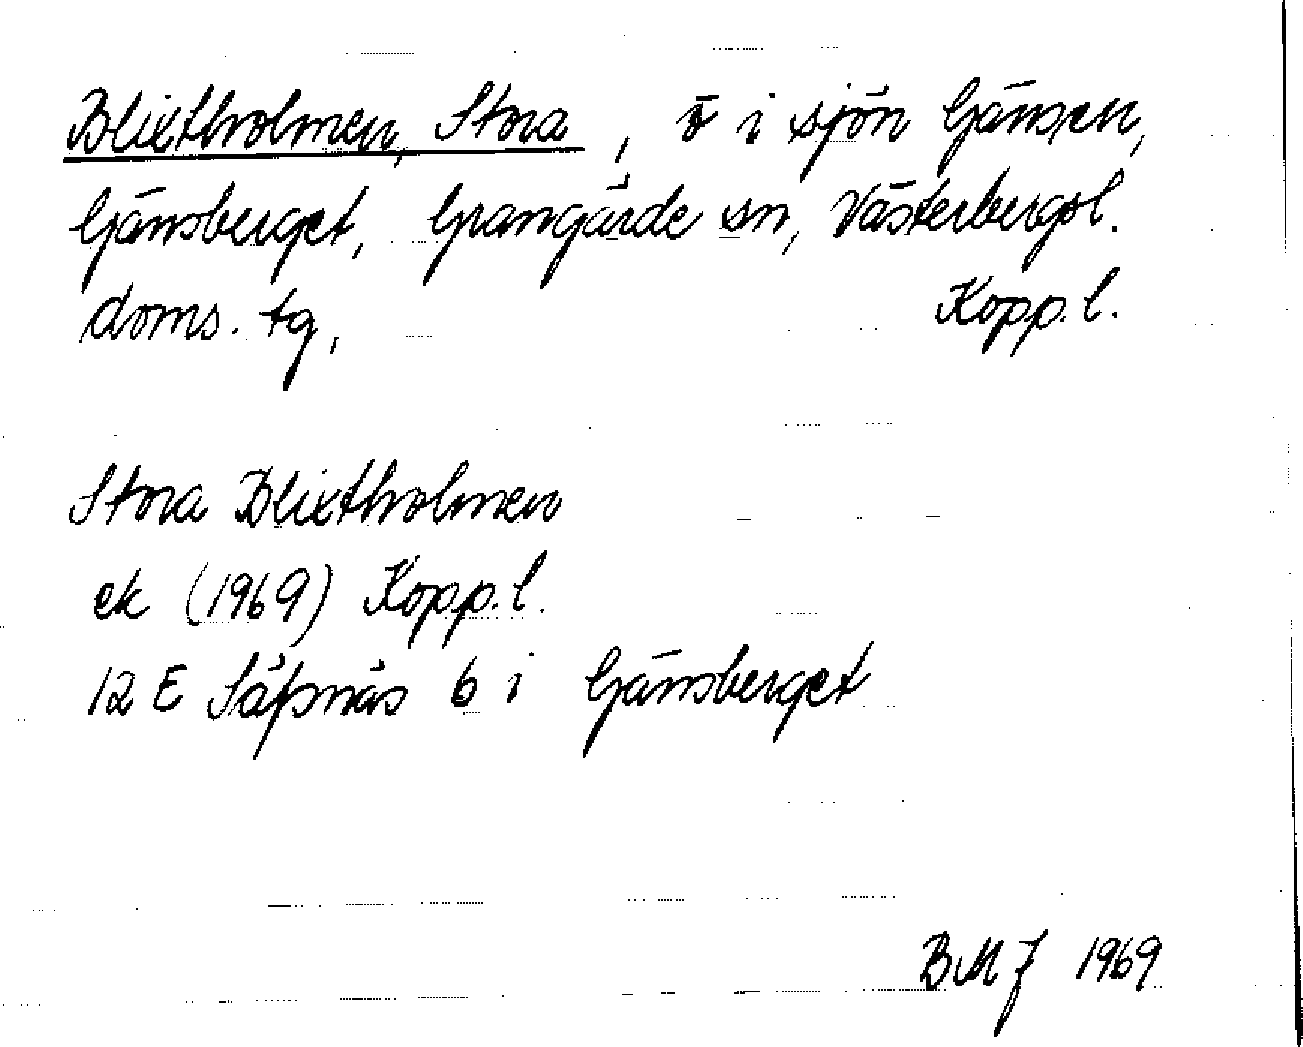 Blixtholmen, Stora, ö i sjön Gänsen,
Gänsberget, Grangärde sn, Västerbergsl.
doms. tg, Kopp. l.
Stora Blixtholmen
ek (1969) Kopp. l.
12 E Säfsnäs 6 i Gänsberget
BMJ 1969